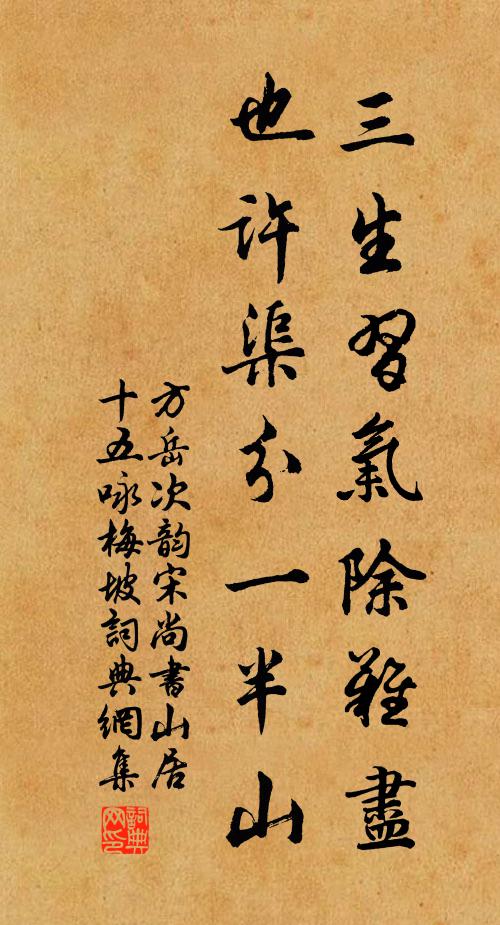 三生習氣除難盡
也許渠分一半山
方岳次韵宋尚書山居
十五咏梅坡詞典網集
詞典
网印